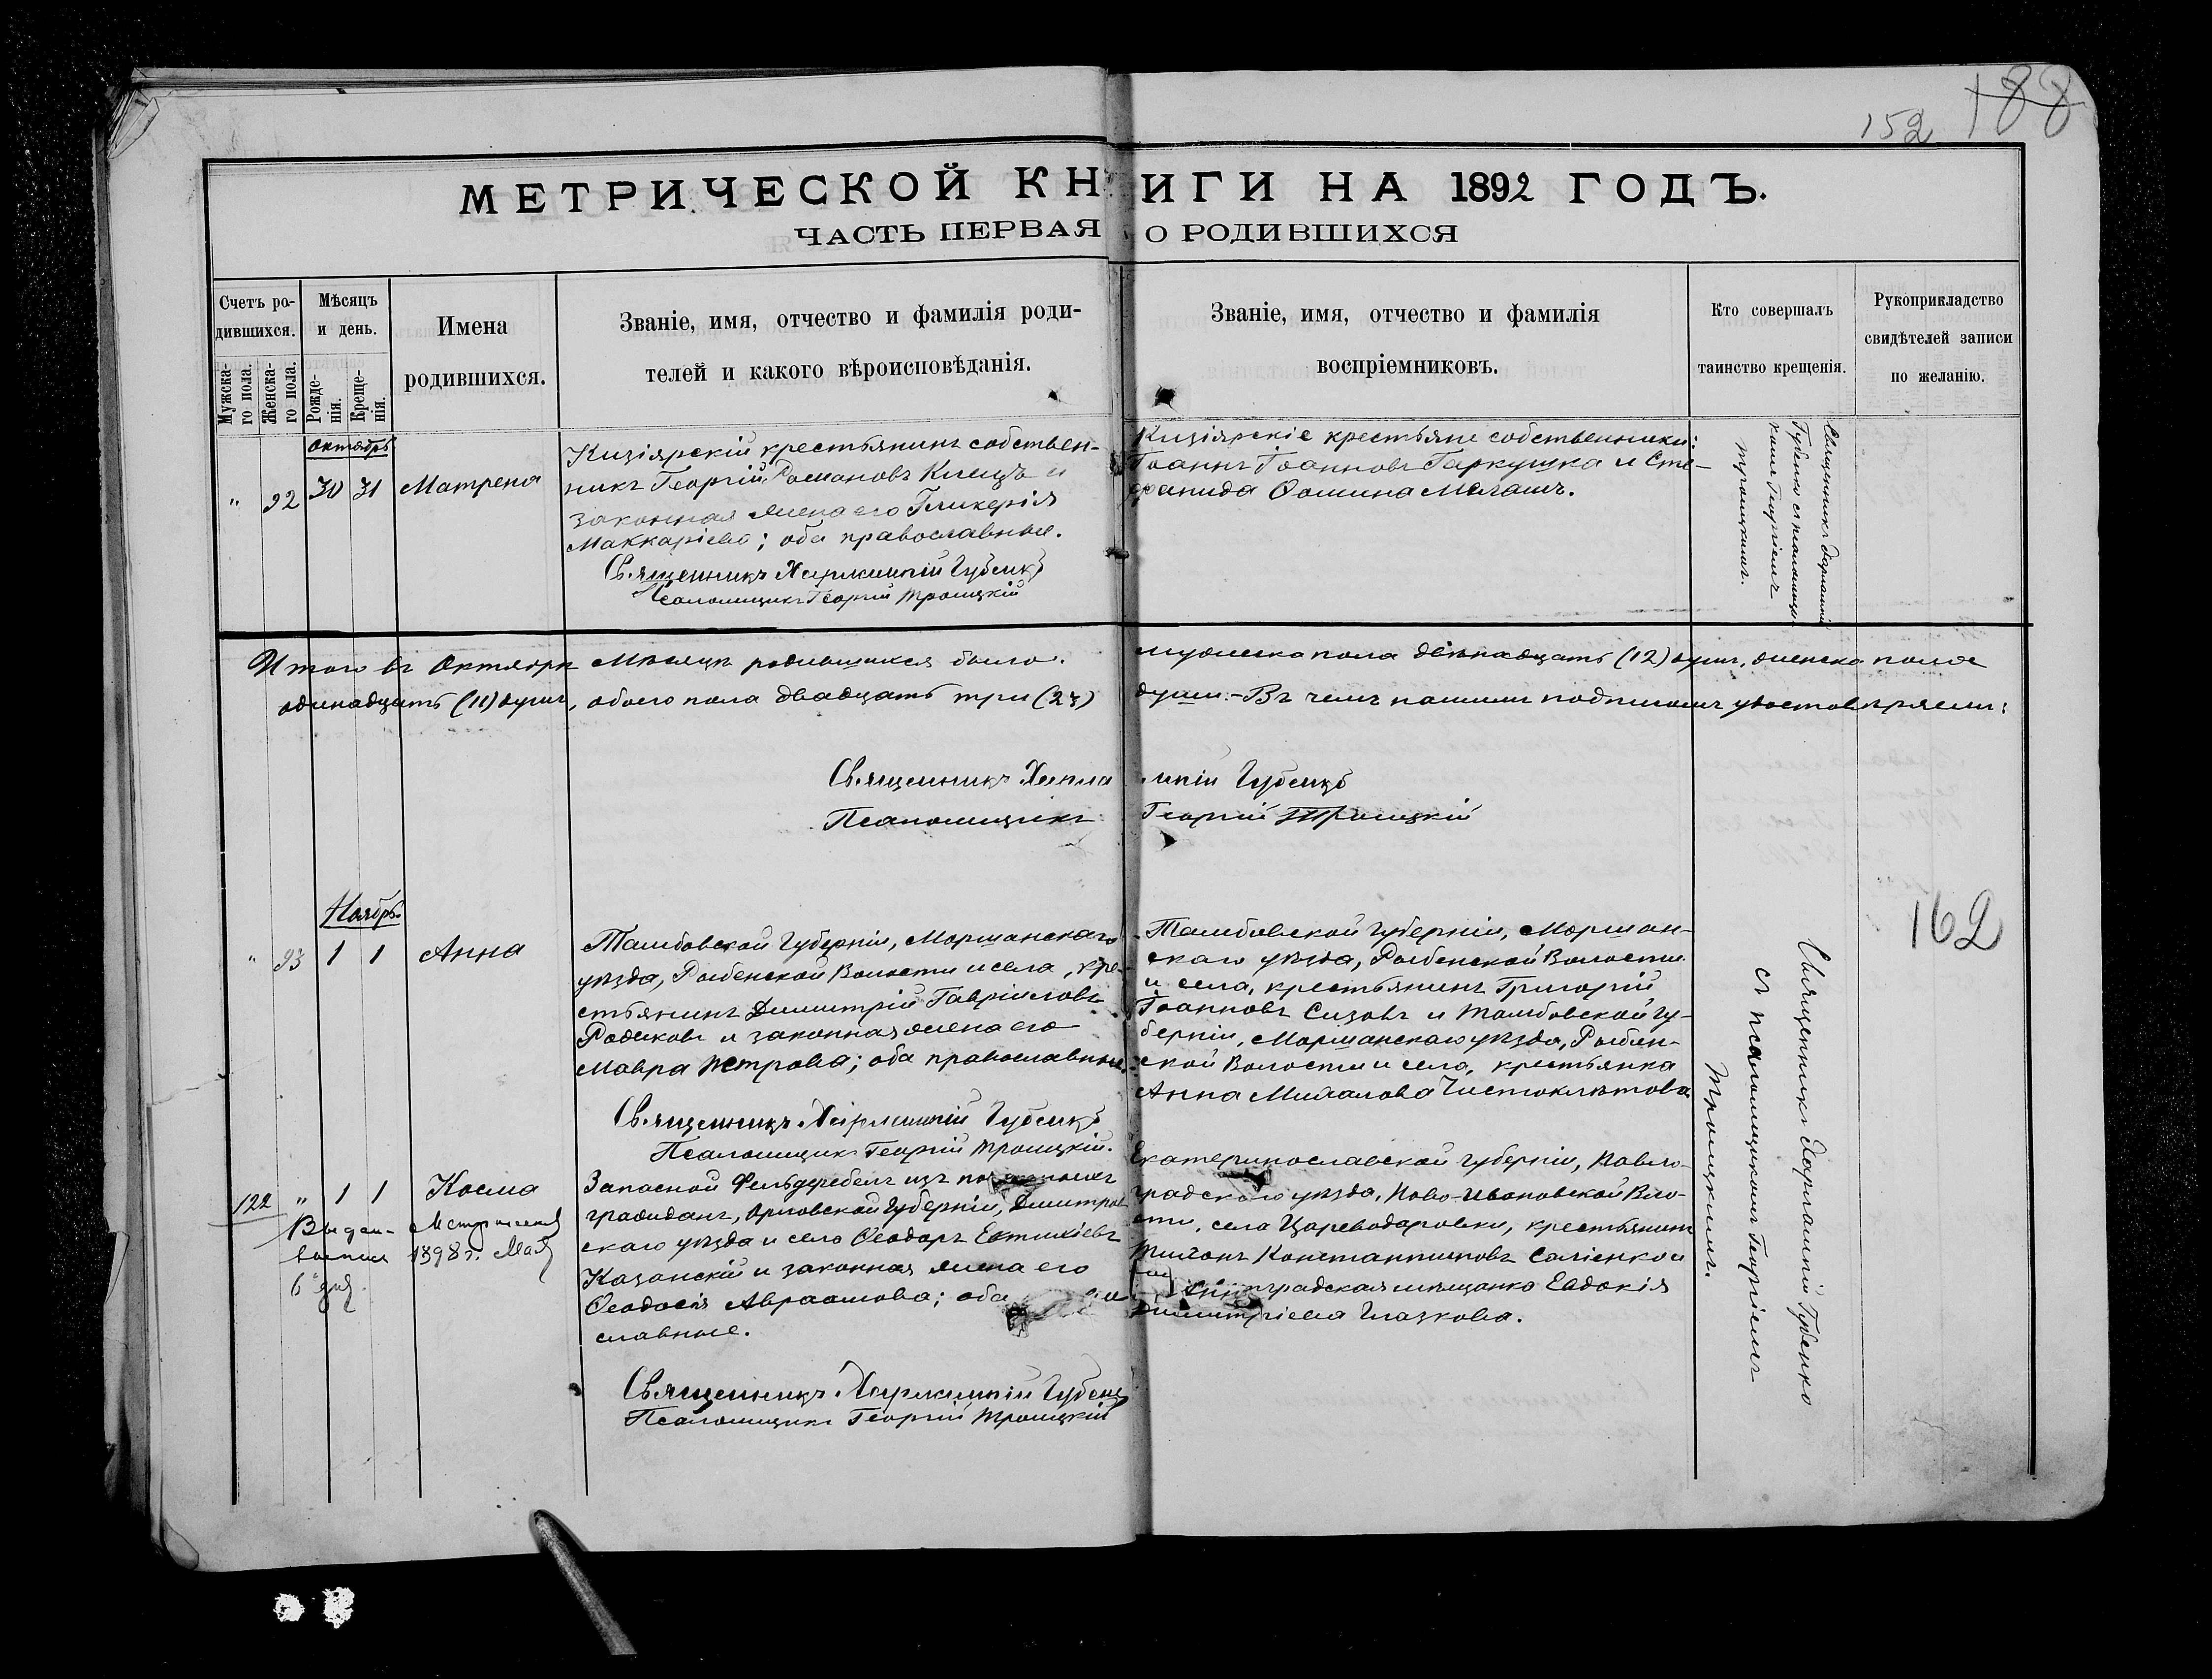 152 188
МЕТРИЧЕСКОЙ КНИГИ НА 1892 ГОДЪ.
ЧАСТЬ ПЕРВАЯ О РОДИВШИХСЯ
Счетъ ро-
дившихся.
Мужска-
го пола.
Женска-
го пола.
Мѣсяцъ
и день.
Рожде-
нія.
Креще-
нія.
Имена
родившихся.
Званіе, имя, отчество и фамилія роди-
телей и какого вѣроисповѣданія.
Званіе, имя, отчество и фамилія
воспріемниковъ.
Кто совершалъ
таинство крещенія.
Рукоприкладство
свидѣтелей записи
по желанію.
Октябрь
" 92 30 31 Матрена
Кизіярскій крестьянинъ собствен-
никъ Георгій Романовъ и
законная жена его Гликерія
Маккаріева; оба православные.
Священникъ Харлампій Губенко
Псаломщикъ Георгій Троицкій
Кизіярскіе крестьяне собственники:
Іоаннъ Іоанновъ Гаркушка и Сте-
фанида Ѳомина Малашъ.
Священникъ Харлампій
Губенко съ псаломщи-
комъ Георгіемъ
Троицкимъ.
Итого въ Октябрѣ мѣсяцѣ родившихся было: мужеска пола двѣнадцать (12) душъ, женска пола
одинадцать (11) душъ, обоего пола двадцать три (23) души. - Въ чемъ нашимъ подписомъ удостовѣряемъ:
Священникъ Харлампій Губенко
Псаломщикъ Георгій Троицкій
Ноябрь
" 93 1 1 Анна
Тамбовской Губерніи, Моршанскаго
уѣзда, Рыбенской Волости и села, кре-
стьянинъ Димитрій Гавріиловъ
Родиковъ и законная жена его
Мавра Петрова; оба православные.
Священникъ Харлампій Губенко
Псаломщикъ Георгій Троицкій.
Тамбовской губерніи, Моршан-
скаго уѣзда, Рыбенской Волости
и села, крестьянинъ Григорій
Іоанновъ Сизовъ и Тамбовской гу-
берніи, Моршанскаго уѣзда, Рыбин-
ской Волости и села, крестьянка
Анна Михаилова Чистоклѣтова.
162
122 " 1 1 Косма
Выдан- Метрическ
выписи 1898 г. Мая
6 дня.
Запасной Фельдфебель изъ
гражданъ, Орловской Губерніи, Димитров-
скаго уѣзда и села Ѳеодоръ Евтихіевъ
Казанскій и законная жена его
Ѳеодосія Авраамова; оба
славные.
Священникъ Харлампій Губенко
Псаломщикъ Георгій Троицкій
Екатеринославской губерніи, Павло-
градскаго уѣзда, Ново-Ивановской Воло-
сти, села Цареводаровки, крестьянинъ
Тихонъ Константиновъ Саліенко и
градская мѣщанка Евдокія
Димитріева Глазкова.
Священникъ Харлампій Губенко
съ псаломщикомъ Георгіемъ
Троицкимъ.